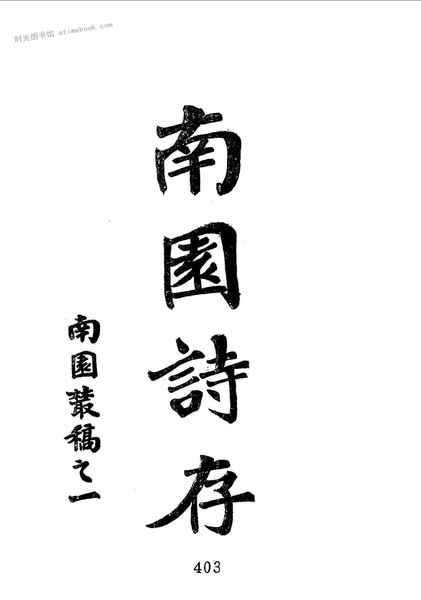 时光图书馆 etimebook.com
南園詩存
南園叢稿之一
403